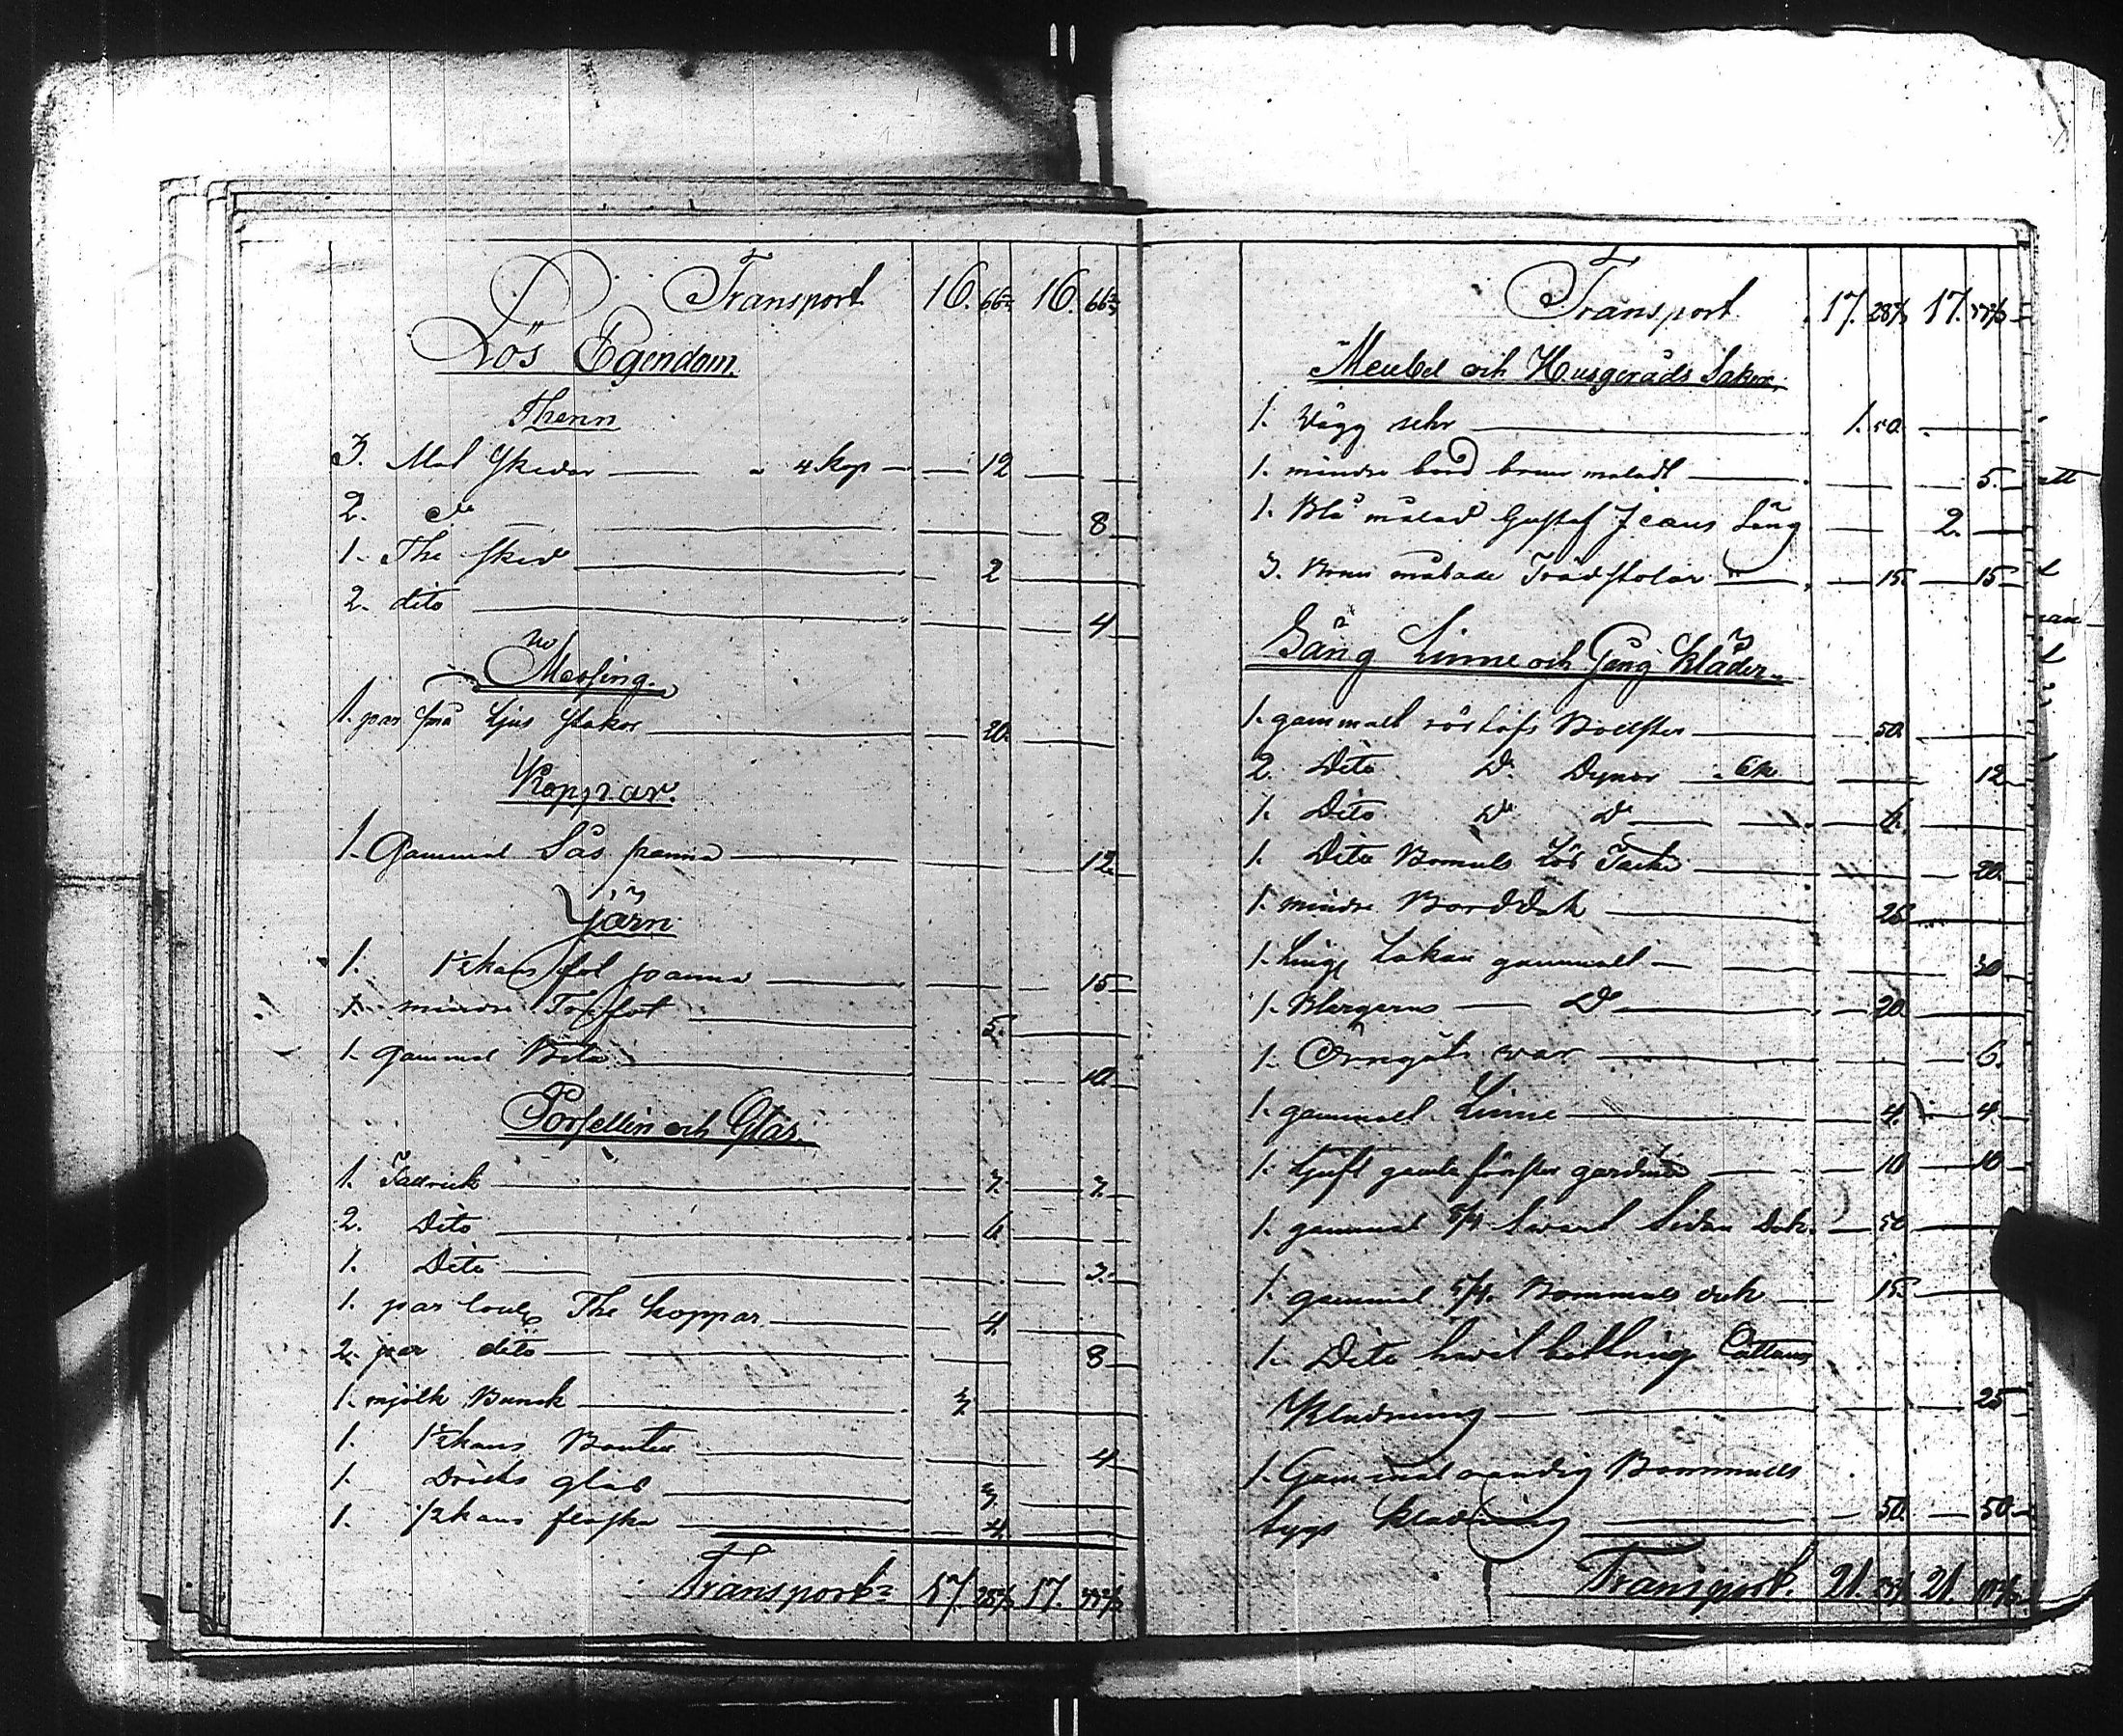 Transport 16. 66⅔ 16. 66⅔
Lös Egendom.
Thenn
3. Mat Skedar — a 4 kop — 12
2. do — 8
1. The sked — 2
2. dito — 4
Messing.
1. par små Ljus stakar — 20.
Koppar.
1. Gammal Sås panna — 12.
Järn
1. 1½ kans fot panna — 15
1. mindre — 5.
1. gammal — 10.
Porsellin och Glas.
1. Tallrick — 3. — 3.
2. Dito — 6.
1. Dito — 3.
1. par The koppar — 4.
2. par dito — 8
1. mjölk Bunck — 3.
1. 1½ kans — 4
1. Dricks glas — 3.
1. ½ kans flaska — 4.
Transport 17. 28⅔ 17. 33⅔
Transport 17. 28⅔ 17. 33⅔
Meubel och Husgeråds Saker.
1. Vägg — 1. 50.
1. mindre bord brun maladt — 5.
1. Blå målad Gustaf Säng — 2.
3. Brun målade Trädstolar — 15. — 15
Säng Linne och Gång kläder
1. gammalt Bolster — 50.
2. Dito Do Dynor — 12
1. Dito Do Do — 6.
1. Dito Bomuls — 20.
1. mindre Bordduk — 25
1. Lakan gammalt — 30
1. Blaggarns — Do — 20.
1. Örngåts war — 6.
1. gammalt Linne — 4. — 4.
1. Luft gamla fönster gardiner — 10 — 10
1. gammal 5/4 Swart Siden Duk — 50
1. gammal 5/4 Bommuls duk — 15.
1. Dito hwit Cattuns
Kladning — 25
1. Gammal randig Bommulls
tygs kladning — 50. — 50
Transport. 21. 21.